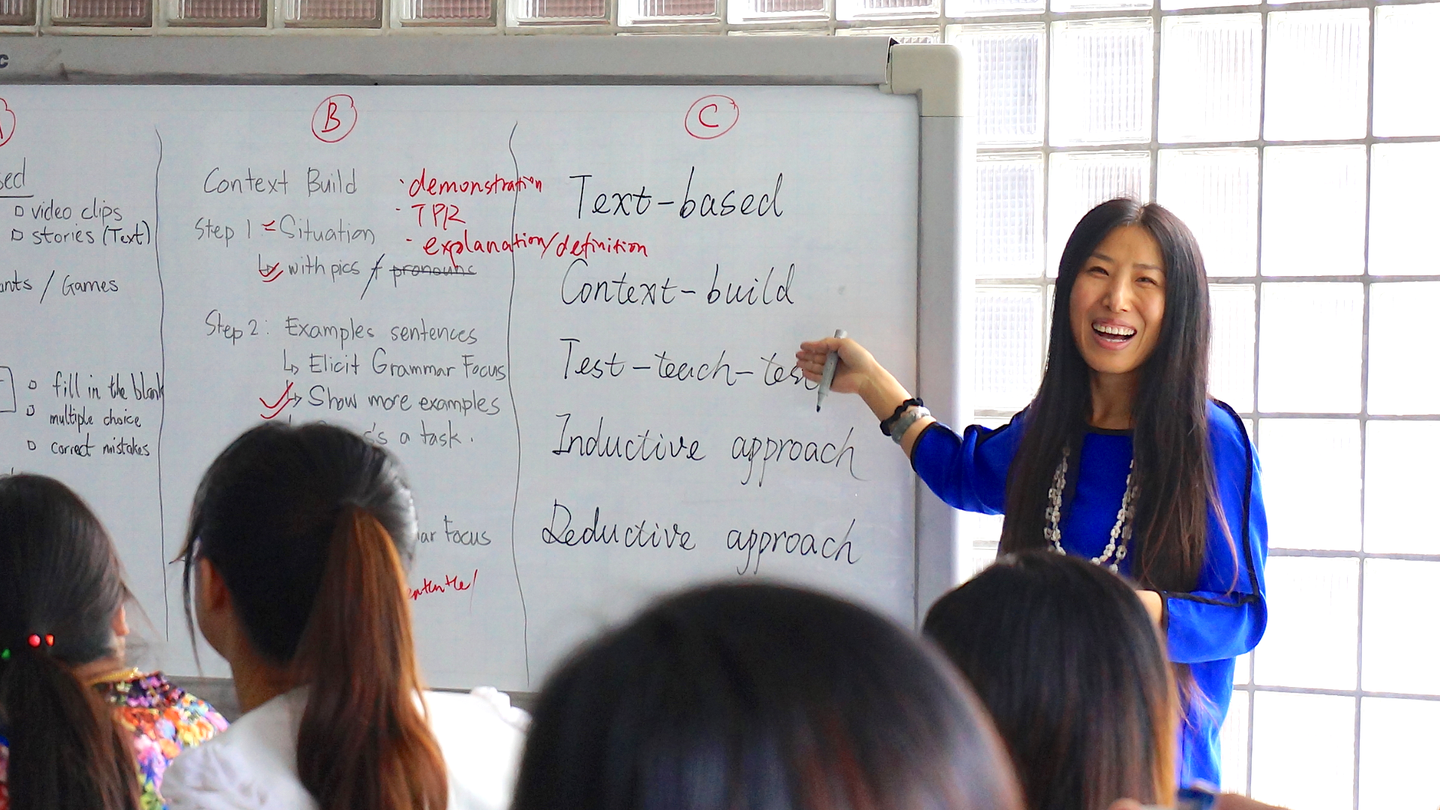 video clips
stories (Text)
/ Games
fill in the blank
multiple choice
correct mistakes
B
Context Build
· demonstration
· TPR
· explanation/definition
Step 1 Situation
with pics / pronouns
Step 2: Examples sentences
Elicit Grammar Focus
Show more examples
a task.
Focus
C
Text-based
Context-build
Test-teach-test
Inductive approach
Deductive approach